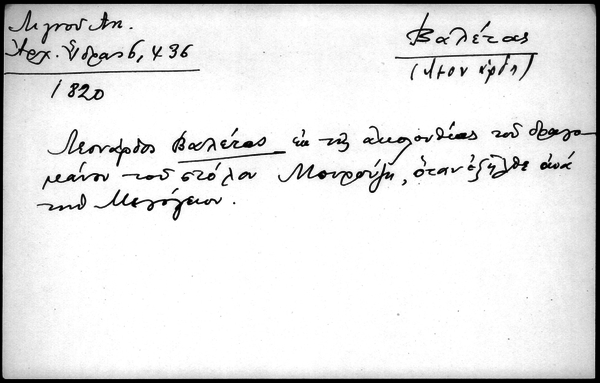 Λιγνού Αν.
Αρχ. Ύδρας 6, 436
1820
Βαλέτας
Λεονάρδος Βαλέτας εκ της ακολουθίας του δραγο
μάνου του στόλου Μουρούζη, όταν εξήλθε από
την Μεσόγειον.